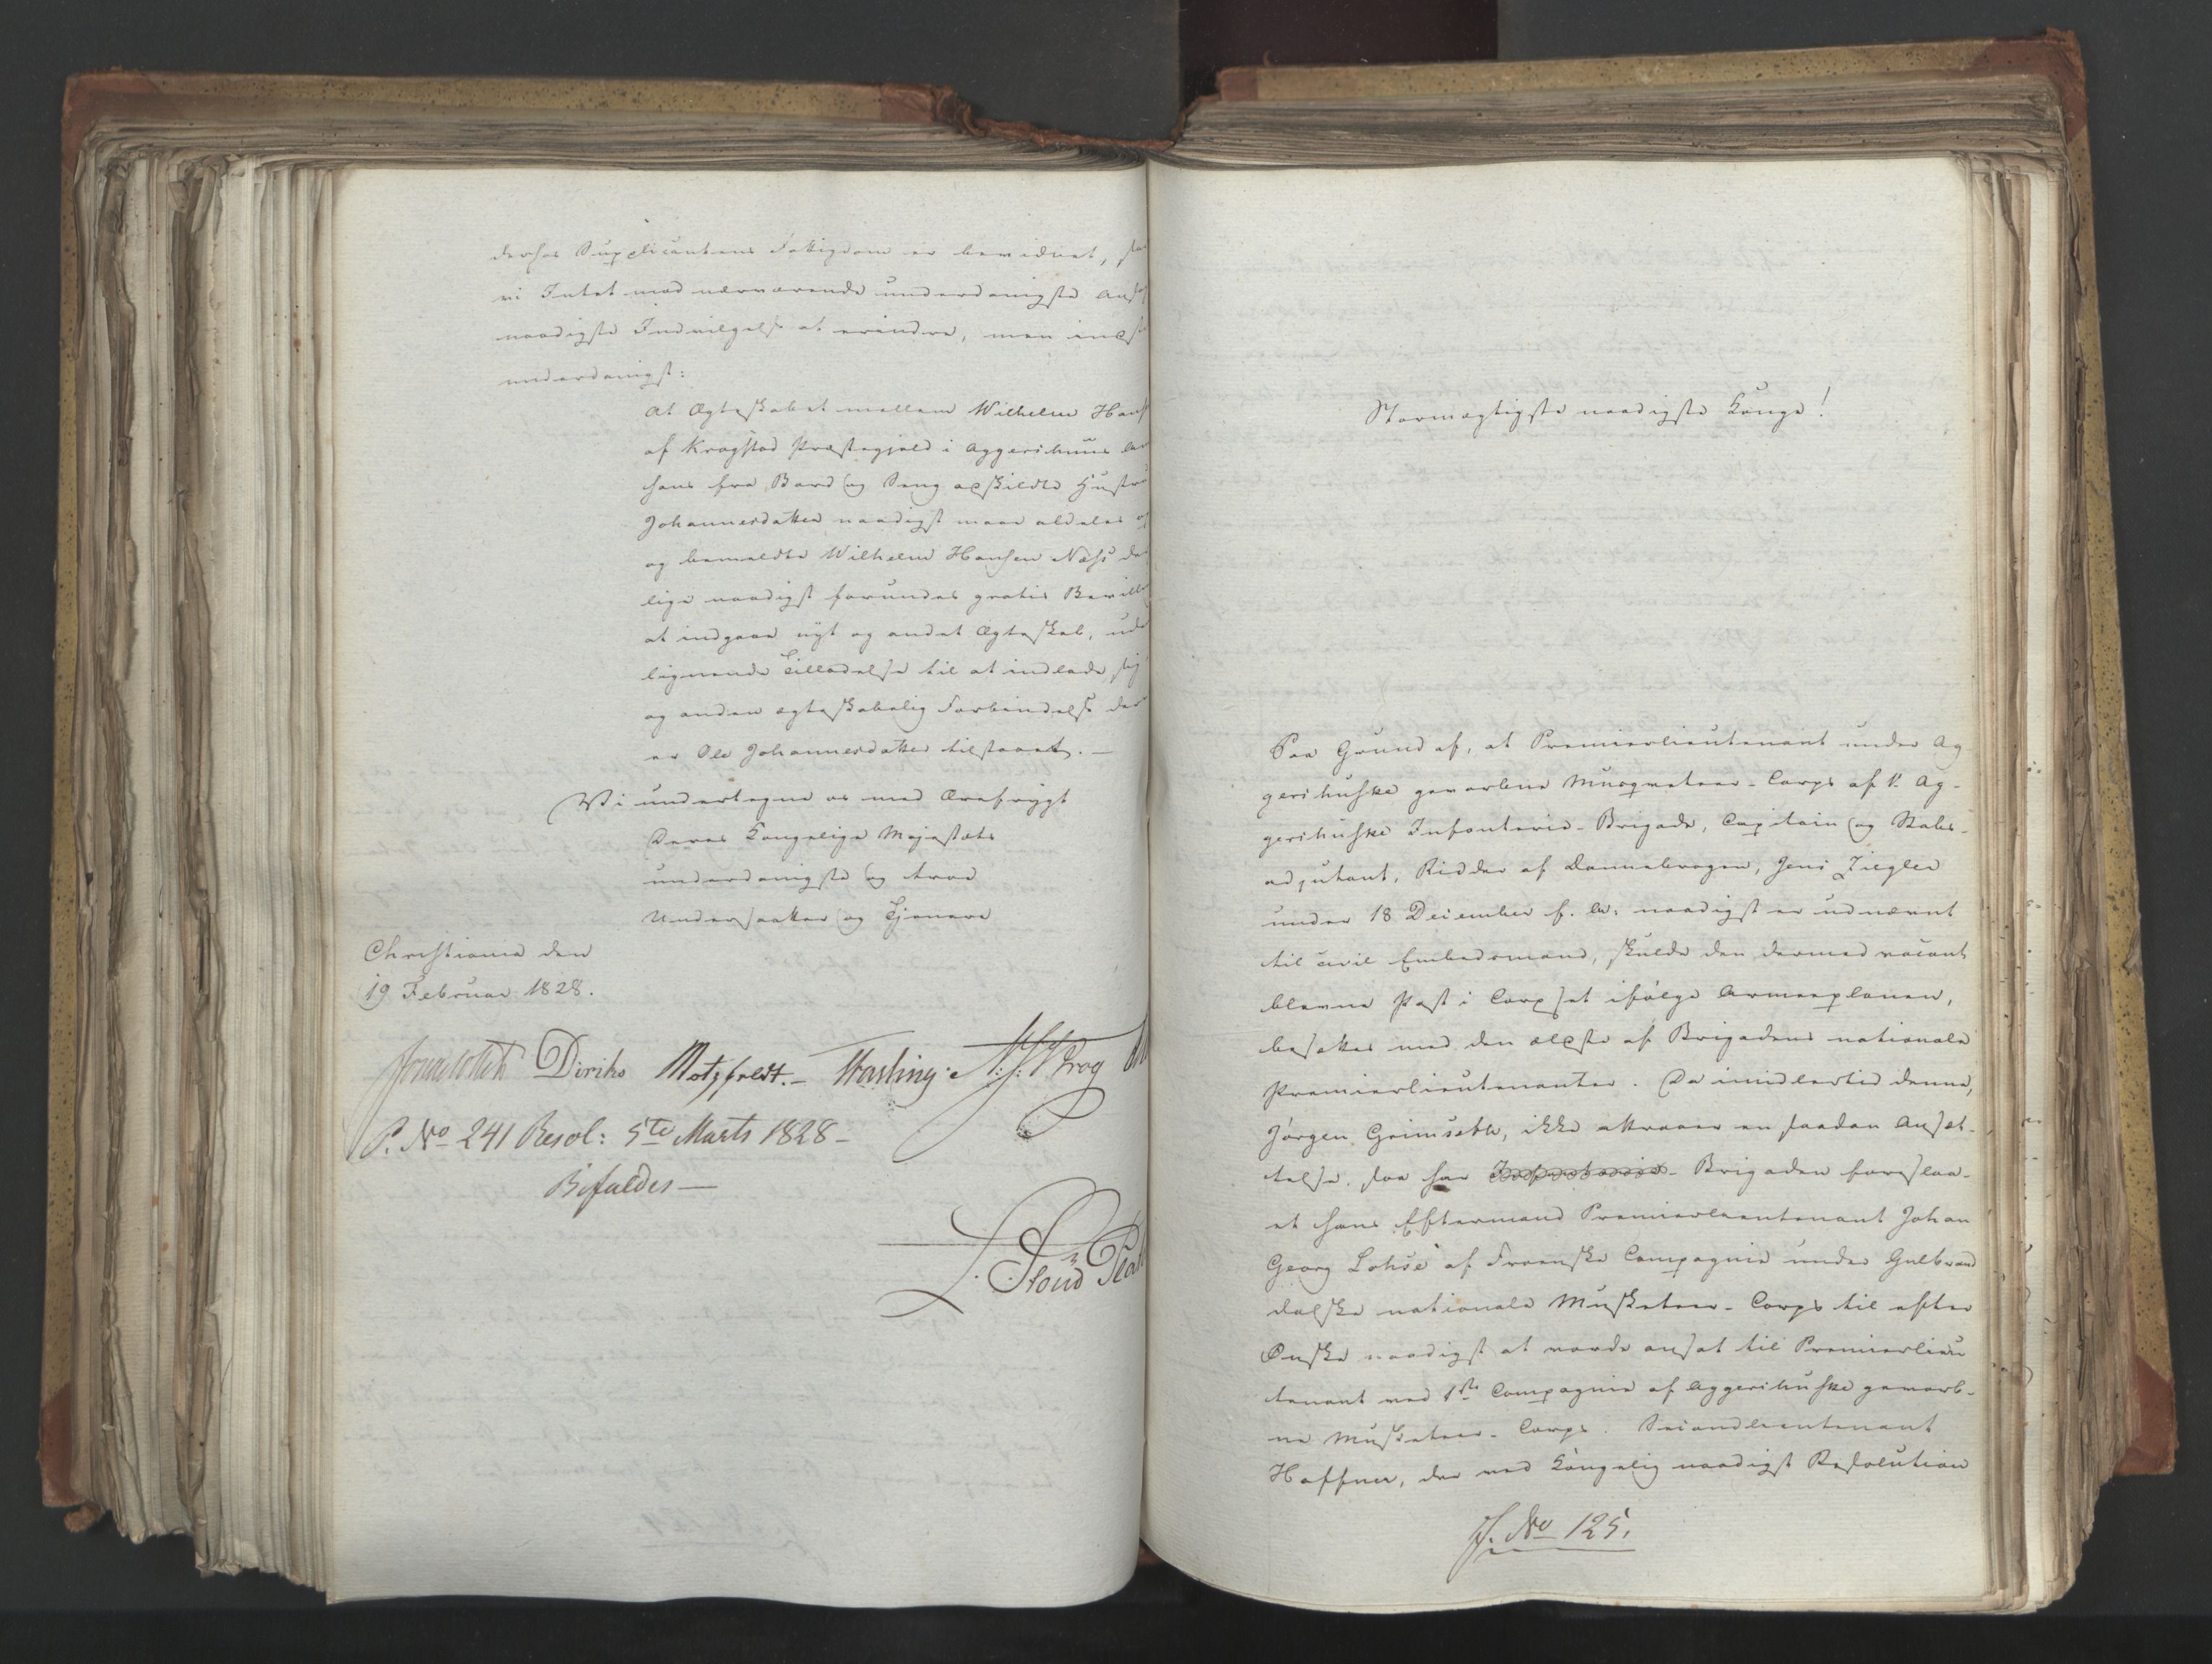 derhos Supplicantens Fattigdom er bevidnet,
vi Intet mod nærværende underdanigste
naadigste Indvilgelse at erindre, men
underdanigst:
At Ægteskabet mellem Wilhelm
af Kragstad Præstegjeld i Aggershuus
hans fra Bord og Seng adskildte Hustru
Johannesdatter naadigst maae aldeles
og bemeldte Wilhelm Hansen Næss
lige naadigst forundes gratis
at indgaae nyt og andet Ægteskab,
lignende Tilladelse til at indlade sig
og anden ægteskabelig Forbindelse
er Ole Johannesdatter tilstaaet. —
Vi undertegne os med Ærefrygt
Deres Kongelige Majestæts
underdanigste og troe
Undersaatter og Tjenere
Christiania den
19 Februar 1828.
Diriks Motzfeldt. — N. J. Krog
P. No 241 Resol: 5te Marts 1828 —
Bifaldes —
Stormægtigste naadigste Konge!
Paa Grund af, at Premierlieutenant under Ag
gershuuske gevorbne Musqveteer-Corps af 1. Ag-
gershuuske Infanterie-Brigade, Capitain og Stabs-
adjutant, Ridder af Dannebrogen, Jens Ziegler
under 18 December f. A. naadigst er udnævnt
til civil Embedsmand, skulde den dermed vacant
blevne Post i Corpset ifølge Armeeplanen,
besættes med den ældste af Brigadens nationale
Premierlieutenanter. Da imidlertid denne,
Jørgen Grimseth, ikke attraaer en saadan Ansæt-
telse, saa har Brigaden foreslaa-
et hans Eftermand Premierlieutenant Johan
Georg Lohse af Fronske Compagnie under Gulbrand
dalske nationale Musketeer-Corps til efter
Ønske naadigst at vorde ansat til Premierlieu
tenant ved 1ste Compagnie af Aggershuuske gevorb-
ne Musketeer-Corps. Secondlieutenant
Haffner, der ved Kongelig naadigst Resolution
J. No 125.